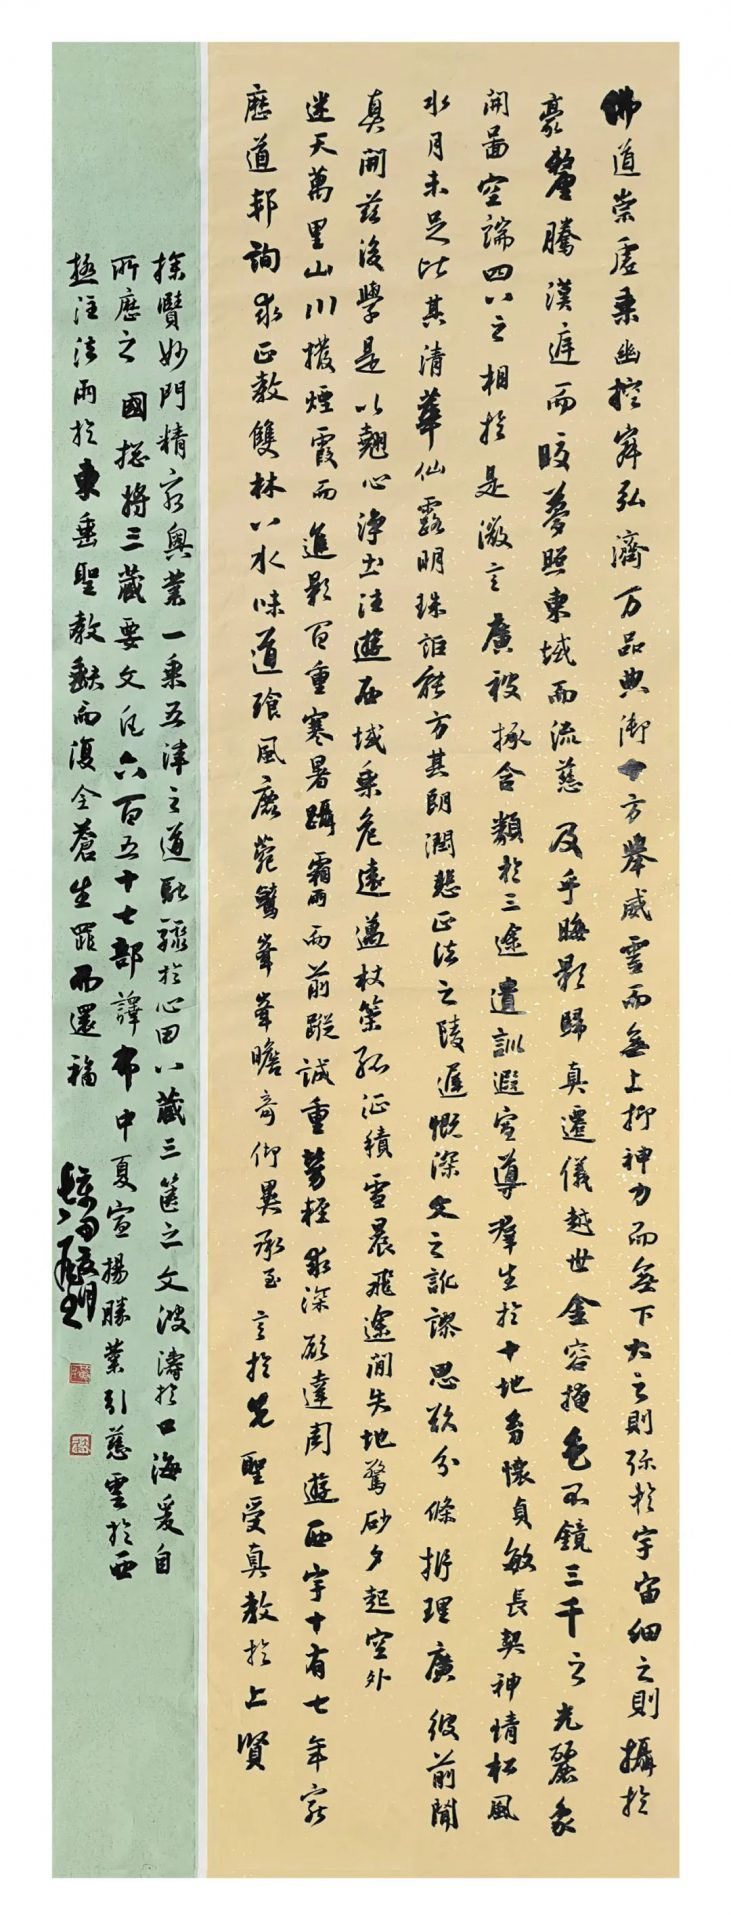 佛道崇虛乘幽控寂弘濟万品典御十方舉威靈而無上抑神力而無下大之則弥於宇宙細之則攝於
豪釐騰漢庭而皎夢照東域而流慈及乎晦影歸真遷儀越世金容掩色不鏡三千之光麗象
開啚空端四八之相於是微言廣被拯含類於三途遺訓遐宣導群生於十地多懷貞敏長契神情松風
水月未足比其清華仙露明珠詎能方其朗潤悲正法之陵遲慨深文之訛謬思欲分條析理廣彼前聞
真開茲後學是以翹心淨土往遊西域乘危遠邁杖策孤征積雪晨飛途間失地驚砂夕起空外
迷天萬里山川撥煙霞而進影百重寒暑躡霜雨而前蹤誠重勞輕求深願達周遊西宇十有七年窮
歷道邦詢求正教雙林八水味道飡風鹿菀鷲峯峯瞻奇仰異承至言於先聖受真教於上賢
探賾妙門精窮奧業一乘五律之道馳驟於心田八藏三篋之文波濤於口海爰自
所歷之國揔將三藏要文凡六百五十七部譯布中夏宣揚勝業引慈雲於西
極注法雨於東垂聖教缺而復全蒼生罪而還福